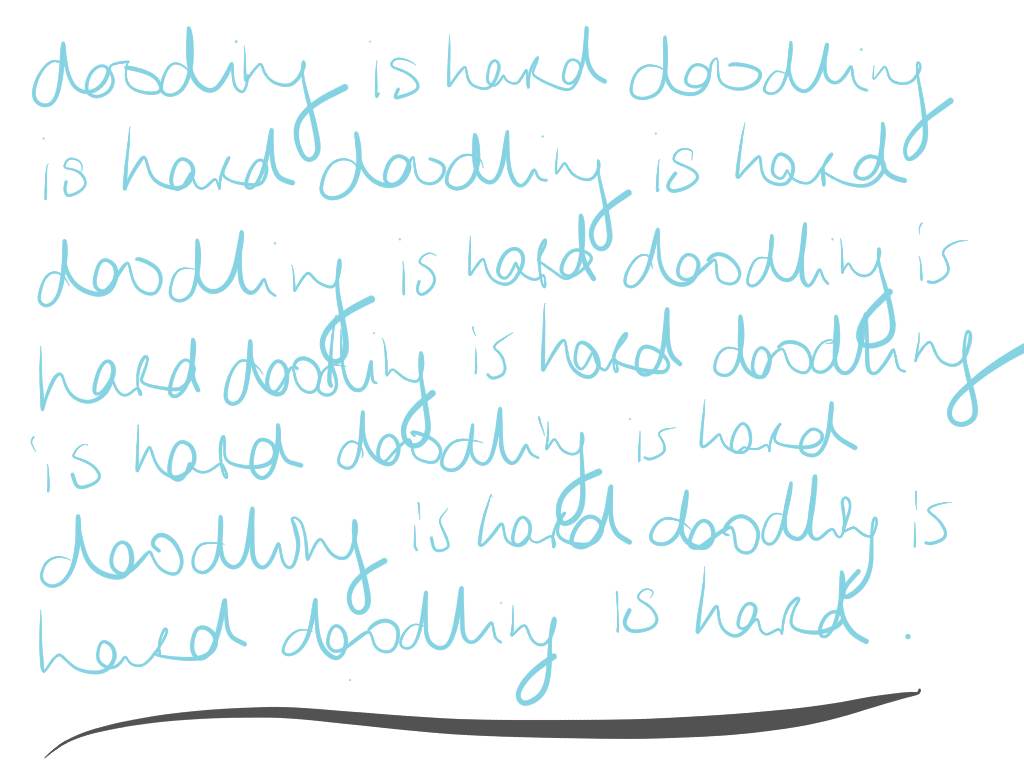 dooding is hard doodling
is hard doodling is hard
doodling is hard doodling is
hard doodling is hard doodling
is hard doodling is hard
doodling is hard doodling is
hard doodling is hard.